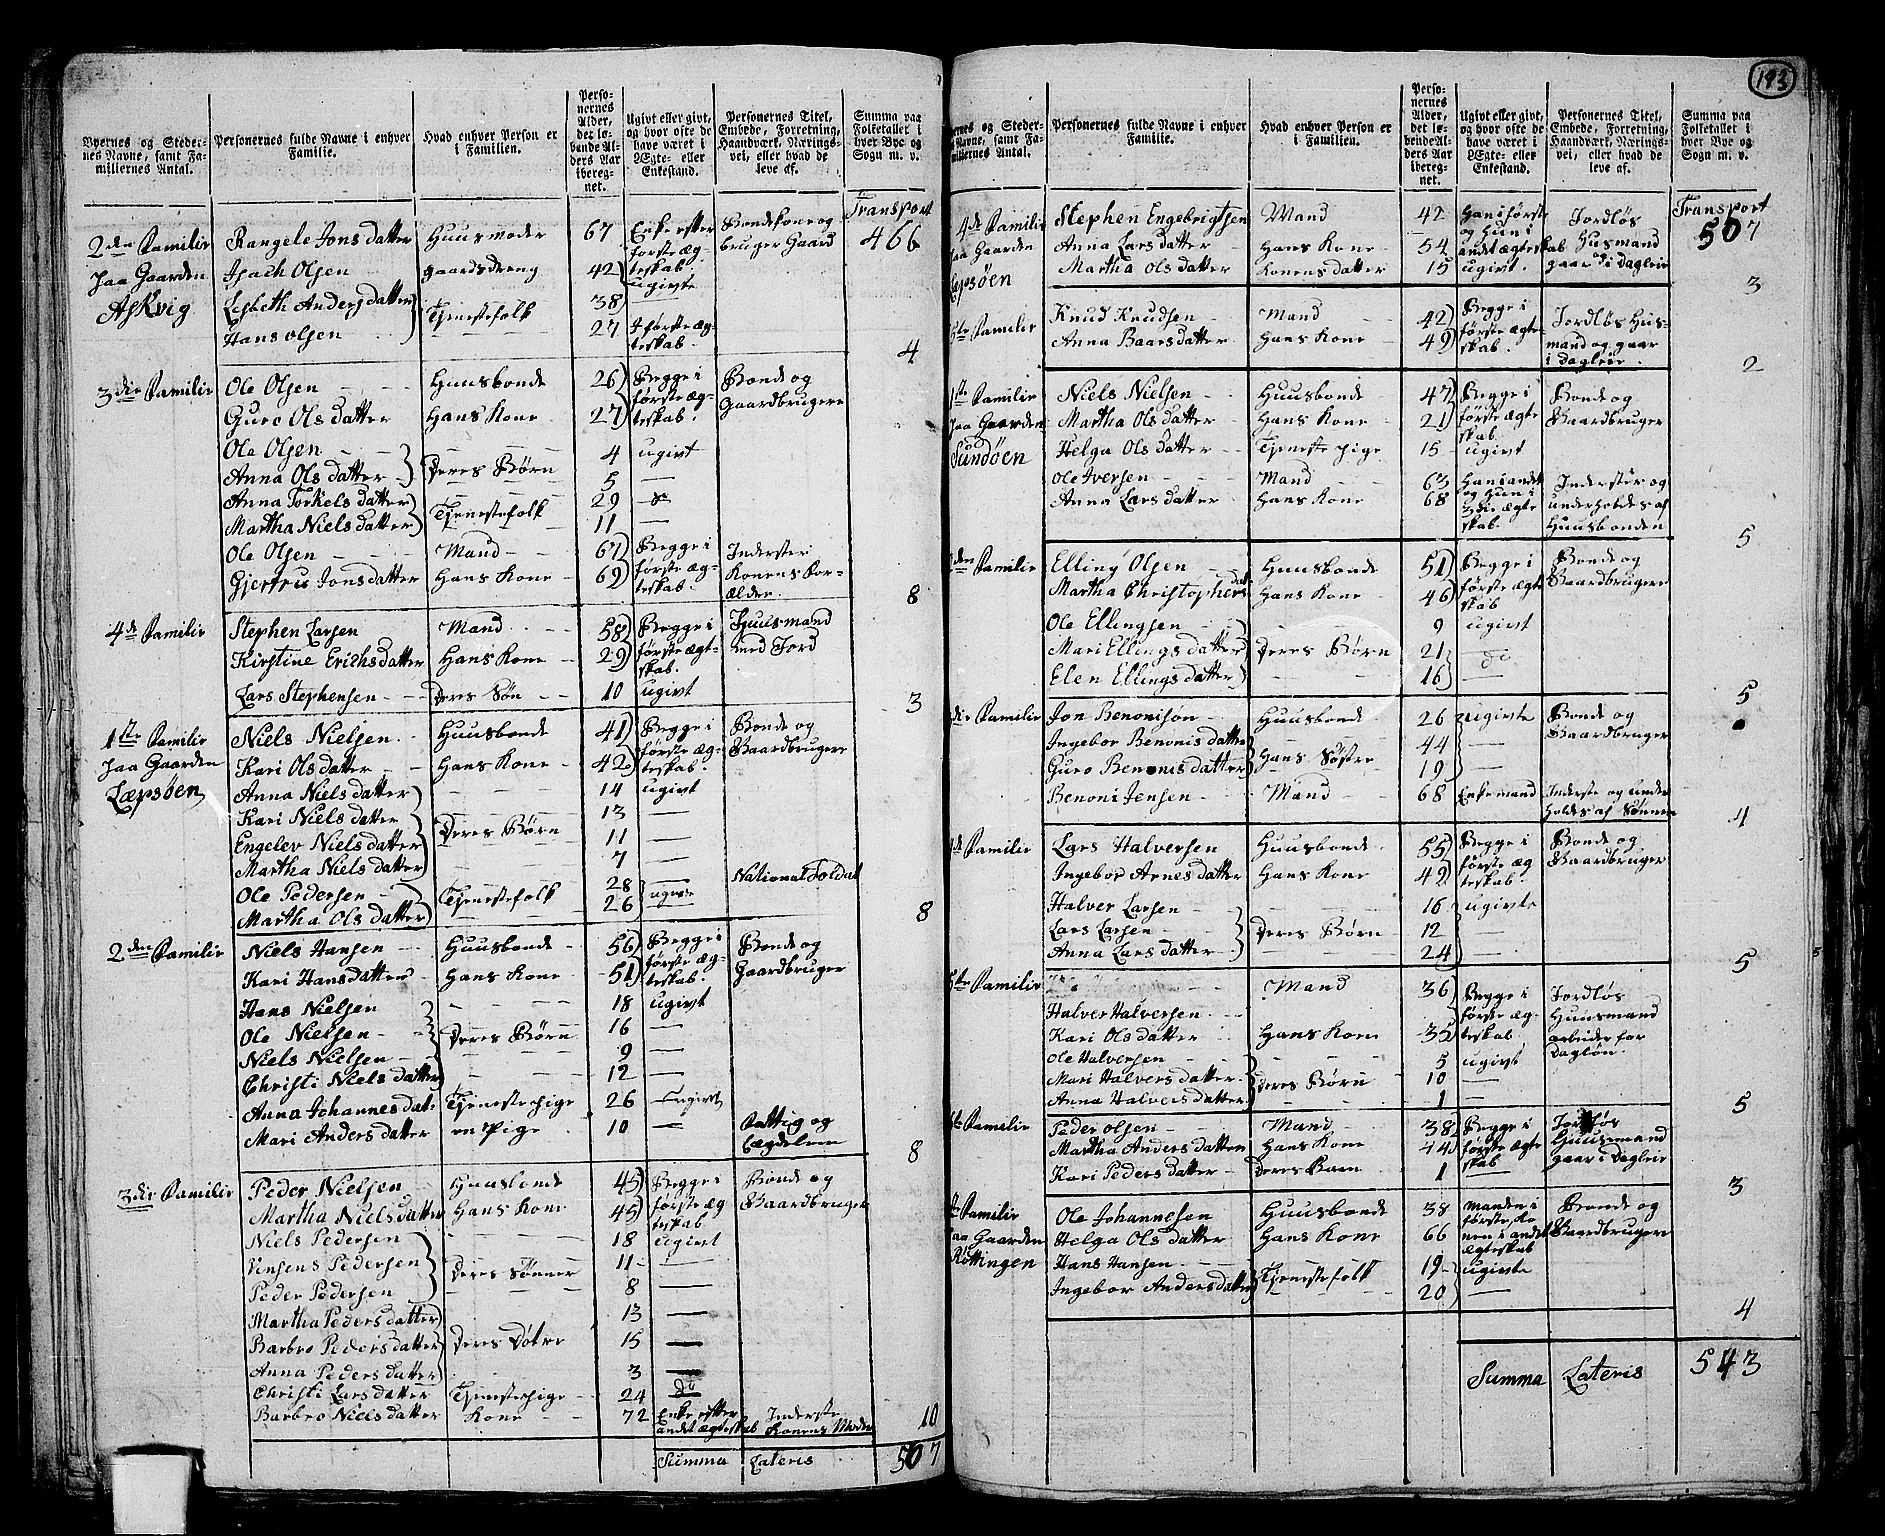 193
Byernes og Stedernes Navne, samt Familiernes Antal.
Personernes fulde Navne i enhver Familie.
Hvad enhver Person er i Familien.
Personernes Alder, det løbende Alders Aar iberegnet.
Ugivt eller givt, og hvor ofte de have været i Ægte- eller Enkestand.
Personernes Titel, Embede, Forretning, Haandværk, Næringsvei, eller hvad de leve af.
Summa paa Folketallet i hver Bye og Sogn m. v.
Transport 466
2den Familie paa Gaarden Askvig
Rangele Jons datter Huusmoder 67 Enke efter første ægteskab. Bondekone og bruger Gaard
Isach Olsen gaardsdreng 42 ugivte
Lisbeth Anders datter 38
Hans Olsen Tjenestefolk 27 I første ægteskab.
4
3die Familie
Ole Olsen Huusbonde 26 Begge i første ægteskab. Bonde og Gaardbrugere
Guro Ols datter Hans Kone 27
Ole Olsen 4 ugivt
Anna Ols datter Deres Børn 5 —
Anna Torkels datter 29 do
Martha Niels datter Tjenestefolk 11 —
Ole Olsen Mand 67 Begge i første ægteskab. Inderster Konens Forældre
Gjertru Jons datter Hans Kone 69
8
4de Familie
Stephen Larsen Mand 58 Begge i første ægteskab. Huusmand med Jord
Kirstine Erichs datter Hans Kone 29
Lars Stephensen Deres Søn 10 ugivt
3
1ste Familie paa Gaarden Læpsøen
Niels Nielsen Huusbonde 41 Begge i første ægteskab. Bonde og Gaardbrugere
Kari Ols datter Hans Kone 42
Anna Niels datter 14 ugivt
Kari Niels datter 13 —
Engelev Niels datter Deres Børn 11 —
Martha Niels datter 7 —
Ole Pedersen Tjenestefolk 28 ugivte National Soldat
Martha Ols datter 26
8
2den Familie
Niels Hansen Huusbonde 56 Begge i første ægteskab. Bonde og Gaardbruger
Kari Hans datter Hans Kone 51
Hans Nielsen 18 ugivt
Ole Nielsen Deres Børn 16 —
Niels Nielsen 9 —
Christi Niels datter 12 —
Anna Johannes dat: Tjenestepige 26 ugivt
Mari Anders datter en Pige 10 — Fattig og Lægdelem
8
3die Familie
Peder Nielsen Huusbonde 45 Begge i første ægteskab Bonde og Gaardbruger
Martha Niels datter Hans Kone 45
Niels Pedersen 18 ugivt
Pedersen Deres Sønner 11 —
Peder Pedersen 8 —
Martha Peders datter 13 —
Barbro Peders datter Deres Døtre 15 —
Anna Peders datter 3 —
Christi Lars datter Tjenestepige 24 do
Barbro Niels datter Kone 72 Enke efter andet ægteskab Inderste Konens Moder
10
Summa Lateris 507
Byernes og Stedernes Navne, samt Familiernes Antal.
Personernes fulde Navne i enhver Familie.
Hvad enhver Person er i Familien.
Personernes Alder, det løbende Alders Aar iberegnet.
Ugivt eller givt, og hvor ofte de have været i Ægte- eller Enkestand.
Personernes Titel, Embede, Forretning, Haandværk, Næringsvei, eller hvad de leve af.
Summa paa Folketallet i hver Bye og Sogn m. v.
Transport 507
4de Familie paa Gaarden Læpsøen
Stephen Engebrigtsen Mand 42 Han i første og Hun i andet ægteskab Jordløs Husmand gaar og i Dagleie
Anna Lars datter Hans Kone 54
Martha Ols datter Konens datter 15 ugivt.
3
5te Familie
Knud Knudsen Mand 42 Begge i første ægteskab. Jordløs Husmand og gaar i Dagleie.
Anna Baars datter Hans Kone 49
2
1ste Familie paa Gaarden Sundøen
Niels Nielsen Huusbonde 47 Begge i første ægteskab Bonde og Gaardbruger
Martha Ols datter Hans Kone 21
Helga Ols datter Tjeneste pige 15 ugivt
Ole Iversen Mand 63 Han i andet og Hun i 3die ægteskab Inderster og underholdes af Huusbonden
Anna Lars datter Hans Kone 68
5
2den Familie
Elling Olsen Huusbonde 51 Begge i første ægteskab Bonde og Gaardbrugere
Martha Christophers dat Hans Kone 46
Ole Ellingsen 9 ugivt
Mari Ellings datter Deres Børn 21 —
Elen Ellings datter 16 do
5
3die Familie
Jon Benonisøn Huusbonde 26 ugivte Bonde og Gaardbruger
Ingebor Benonis datter Hans Søstre 44 —
Guro Benonis datter 19 —
Benoni Jensen Mand 68 Enkemand Inderste og underholdes af Sønnen
4
4de Familie
Lars Halversen Huusbonde 55 Begge i første ægteskab Bonde og Gaardbruger
Ingebor Arnes datter Hans Kone 42
Halver Larsen 16 ugivte
Lars Larsen Deres Børn 12
Anna Lars datter 24 —
5
5te Familie
Halver Halversen Mand 36 Begge i første ægteskab Jordløs Huusmand arbeider for Dagløn.
Kari Ols datter Hans Kone 35
Ole Halversen 5 ugivt
Mari Halvers datter Deres Børn 10 —
Anna Halvers datter 1 —
5
6te Familie
Peder Olsen Mand 38 Begge i første ægteskab Jordløs Huusmand gaar i Dagleie
Martha Anders datter Hans Kone 44
Kari Peders datter Deres Barn 1 —
3
Familie paa Gaarden Røttingen
Ole Johannesen Huusbonde 38 Manden i første, Konen i andet ægteskab Bonde og Gaardbrugere
Helga Ols datter Hans Kone 66
Hans Hansen Tjenestefolk 19 ugivte
Ingebor Anders datter 20 —
4
Summa Lateris 543